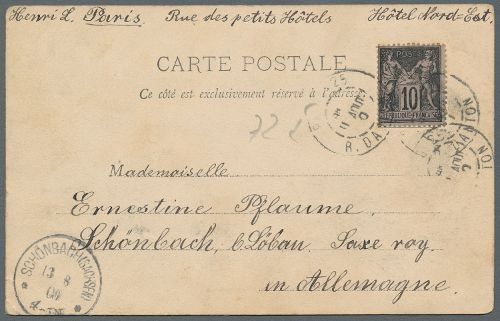 Henri L. Paris. Rue des petits Hôtels Hôtel Nord=Est.
CARTE POSTALE
Ce côté est exclusivement réservé à l'adresse
POSTES
10
RÉPUBLIQUE FRANÇAISE
R. DA
Mademoiselle
Ernestine Pflaume,
Schönbach, b. Löbau. Saxe roy.
in Allemagne.
SCHÖNBACH (SACHSEN)
13 8